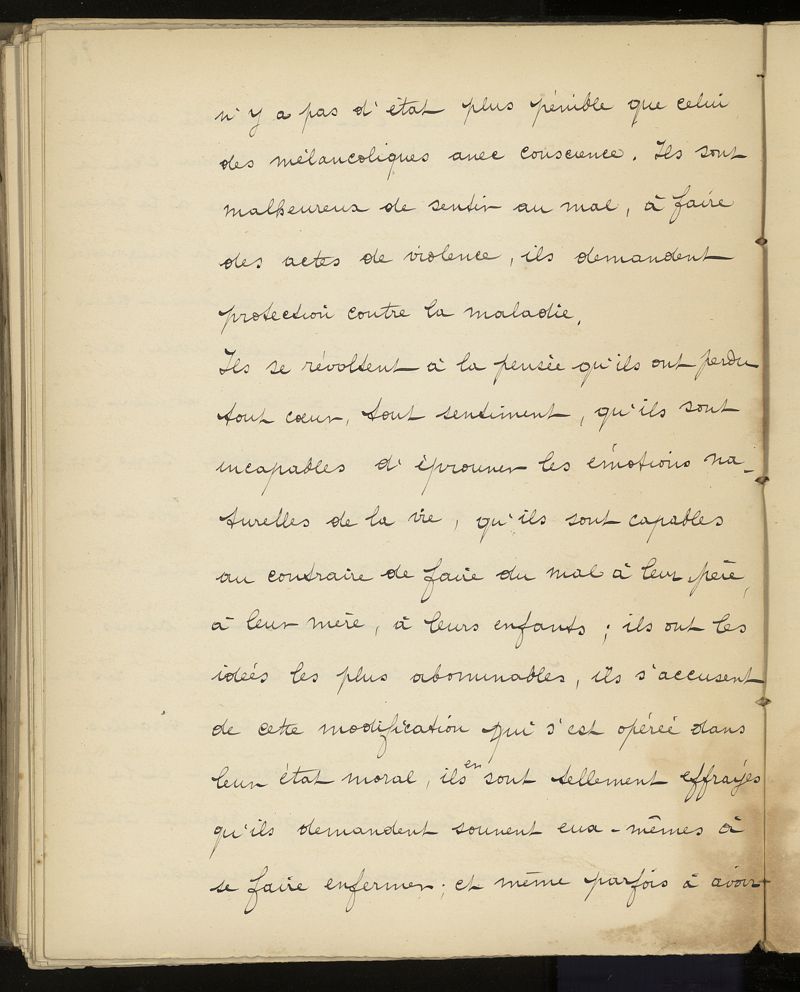 n'y a pas d'état plus pénible que celui
des mélancoliques avec conscience. Ils sont
malheureux de sentir au mal, à faire
des actes de violence, ils demandent
protection contre la maladie.
Ils se révoltent à la pensée qu'ils ont perdu
tout cœur, tout sentiment, qu'ils sont
incapables d'éprouver les émotions na-
turelles de la vie, qu'ils sont capables
au contraire de faire du mal à leur père,
à leur mère, à leurs enfants ; ils ont les
idées les plus abominables, ils s'accusent
de cette modification qui s'est opérée dans
leur état moral, ils en sont tellement effrayés
qu'ils demandent souvent eux-mêmes à
se faire enfermer ; et même parfois à avoir